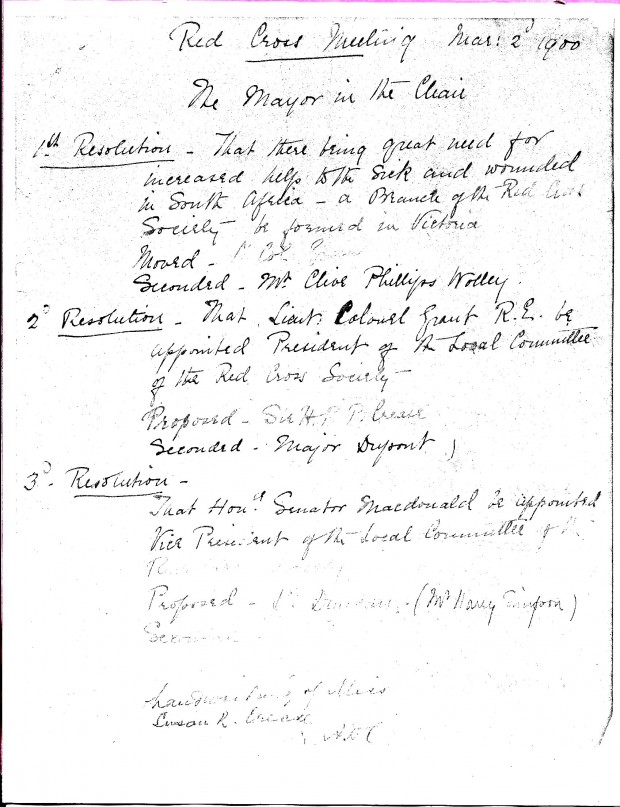 Red Cross Meeting Mar: 2d 1900
The Mayor in the Chair
1st Resolution - That there being great need for
increased help to the Sick and wounded
in South Africa - a Branch of the Red Cross
Society be formed in Victoria
Moved - Col.
Seconded - Mr Clive Phillips Wolley.
2d Resolution - That Lieut: Colonel Grant R.E. be
appointed President of the Local Committee
of the Red Cross Society
Proposed - Sir H. P. P. Crease
Seconded - Major Dupont
3d - Resolution -
That Honl. Senator Macdonald be appointed
Vice President of the Local Committee of the
Proposed - (Mr Harry Simpson)
handwriting of Miss
Susan R. Crease